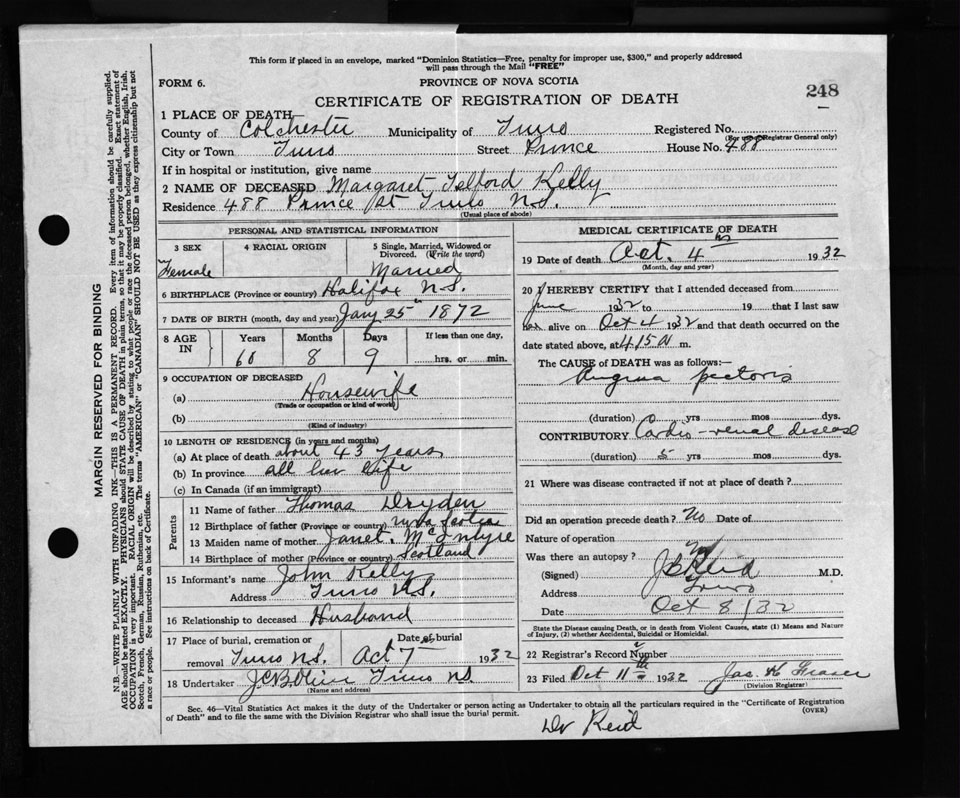 This form if placed in an envelope, marked "Dominion Statistics—Free, penalty for improper use, $300," and properly addressed
will pass through the Mail "FREE"
FORM 6.
PROVINCE OF NOVA SCOTIA
248
CERTIFICATE OF REGISTRATION OF DEATH
1 PLACE OF DEATH
County of Colchester Municipality of Truro Registered No.
(For use of Registrar General only)
City or Town Truro Street Prince House No. 488
If in hospital or institution, give name
2 NAME OF DECEASED Margaret Telford Kelly
Residence 488 Prince St Truro N.S.
(Usual place of abode)
PERSONAL AND STATISTICAL INFORMATION
3 SEX 4 RACIAL ORIGIN 5 Single, Married, Widowed or
Divorced. (Write the word)
Female Married
6 BIRTHPLACE (Province or country) Halifax N.S.
7 DATE OF BIRTH (month, day and year) Jany 25 1872
8 AGE IN Years Months Days If less than one day,
60 8 9 hrs. or min.
9 OCCUPATION OF DECEASED
(a) Housewife
(Trade or occupation or kind of work)
(b)
(Kind of industry)
10 LENGTH OF RESIDENCE (in years and months)
(a) At place of death about 43 years
(b) In province all her life
(c) In Canada (if an immigrant)
Parents
11 Name of father Thomas Dryden
12 Birthplace of father (Province or country) Nova Scotia
13 Maiden name of mother Janet McIntyre
14 Birthplace of mother (Province or country) Scotland
15 Informant's name John Kelly
Address Truro N.S.
16 Relationship to deceased Husband
17 Place of burial, cremation or Date of burial
removal Truro N.S. Oct 7 1932
18 Undertaker J.C.B. Olive Truro N.S.
(Name and address)
MEDICAL CERTIFICATE OF DEATH
19 Date of death Oct. 4th 1932
(Month, day and year)
20 I HEREBY CERTIFY that I attended deceased from
June 1932 to 19 that I last saw
her alive on Oct 4 1932 and that death occurred on the
date stated above, at 4.15 m.
The CAUSE of DEATH was as follows:—
Angina pectoris
(duration) yrs mos dys.
CONTRIBUTORY Cardio-renal disease
(duration) 5 yrs mos. dys.
21 Where was disease contracted if not at place of death?
Did an operation precede death? No Date of
Nature of operation
Was there an autopsy?
(Signed) Reid M.D.
Address Truro
Date Oct 8/32
State the Disease causing Death, or in death from Violent Causes, state (1) Means and Nature
of Injury, (2) whether Accidental, Suicidal or Homicidal.
22 Registrar's Record Number
23 Filed Oct 11th 1932 Jas. H Fraser
(Division Registrar)
Sec. 46—Vital Statistics Act makes it the duty of the Undertaker or person acting as Undertaker to obtain all the particulars required in the "Certificate of Registration
of Death" and to file the same with the Division Registrar who shall issue the burial permit. (OVER)
Dr Reid
MARGIN RESERVED FOR BINDING
N.B.—WRITE PLAINLY WITH UNFADING INK—THIS IS A PERMANENT RECORD. Every item of information should be carefully supplied.
AGE should be stated EXACTLY. PHYSICIANS should STATE CAUSE OF DEATH in plain terms, so that it may be properly classified. Exact statement of
OCCUPATION is very important. RACIAL ORIGIN will be described by stating to what people or race the deceased person belonged, whether English, Irish,
Scotch, French, German, Russian, Ruthenian, etc. The terms "AMERICAN" or "CANADIAN" SHOULD NOT BE USED as they express citizenship but not
a race or people. See instructions on back of Certificate.